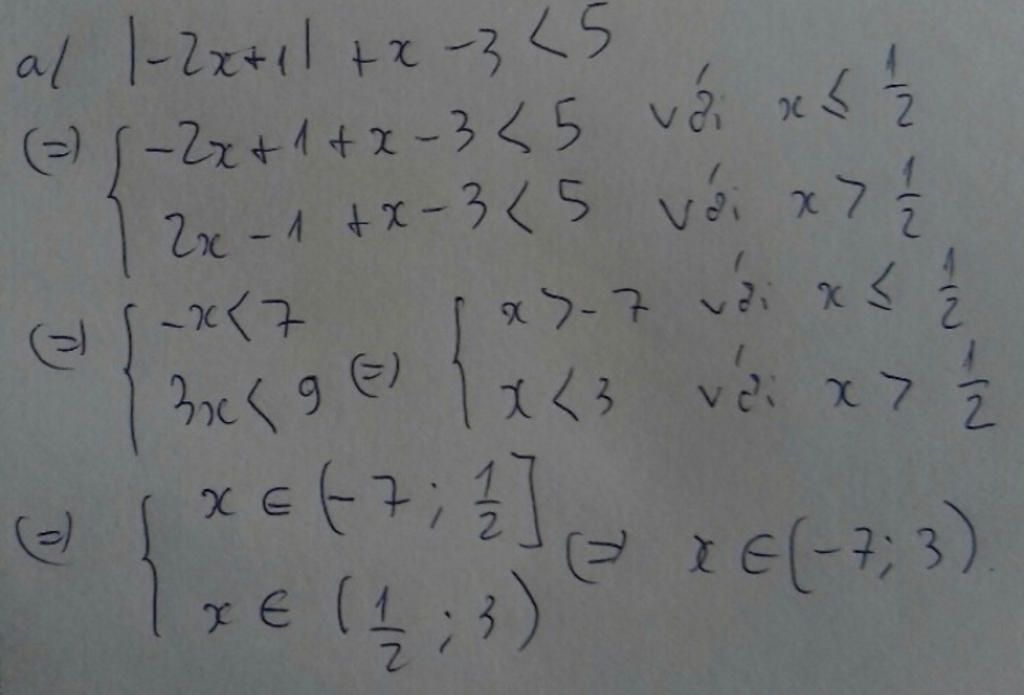 a/ |-2x+1| + x - 3 < 5
(=) { -2x+1+x-3 < 5 với x ≤ 1/2
2x-1 +x-3 < 5 với x > 1/2
(=) { -x < 7 (=) { x > -7 với x ≤ 1/2
3x < 9 x < 3 với x > 1/2
(=) { x ∈ (-7; 1/2] (=) x ∈ (-7; 3).
x ∈ (1/2; 3)